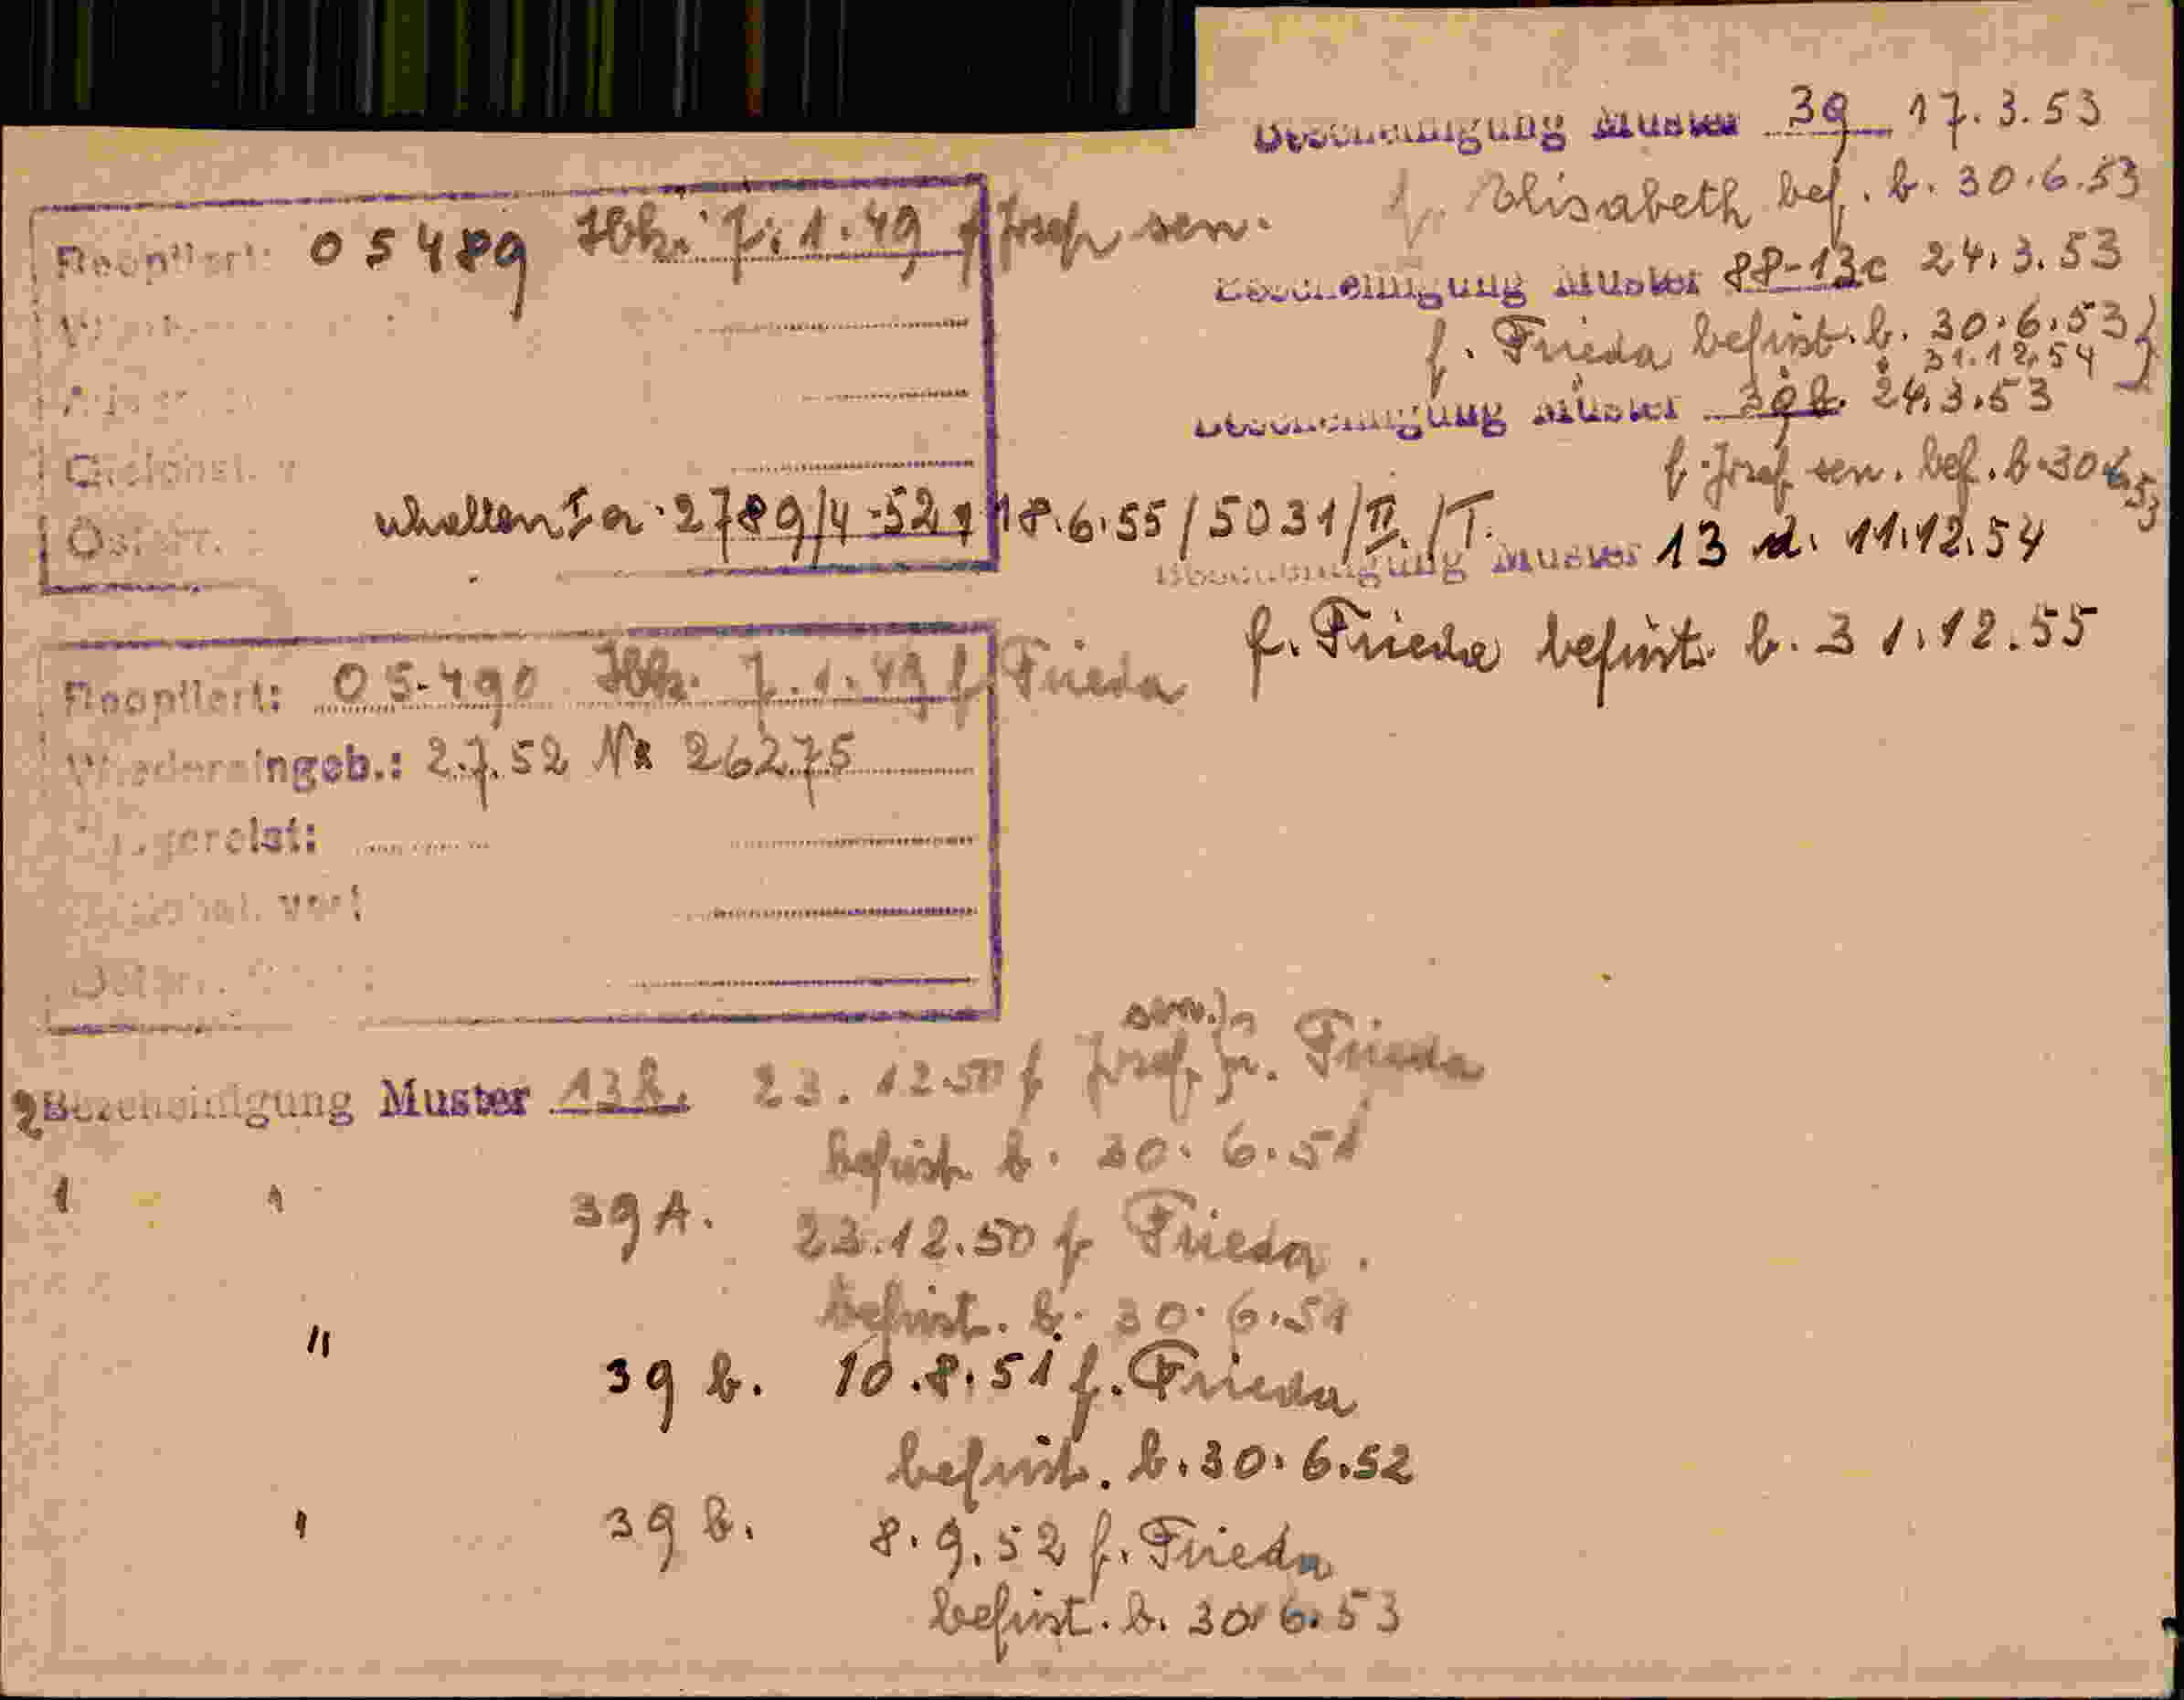 Reoptiert: 05489 Ibk. 7.1.49 f Josef sen.
Gleichst. v
Österr. erhalten 2789/4-52 18.6.55/5031/II./T.
Reoptiert: 05490 Ibk. 7.1.49 f. Frieda
Wiedereingeb.: 2.7.52 Nr 26275
Zugereist:
Gleichst. ver
Österr.
2 Bescheinigung Muster 13b. 23.12.50 f Josef sen. jr. Frieda
befrist. b. 30.6.51
1 " 39 A. 23.12.50 f Frieda.
befrist. b. 30.6.51
" 39 b. 10.8.51 f. Frieda
befrist. b. 30.6.52
" 39 b. 8.9.52 f. Frieda
befrist. b. 30.6.53
Bescheinigung Muster 39 17.3.53
f. Elisabeth bef. b. 30.6.53
Bescheinigung Muster 88-13c 24.3.53
f. Frieda befrist. b. 30.6.53)
31.12.54
Bescheinigung Muster 39b. 24.3.53
f. Josef sen. bef. b. 30.6.53
Bescheinigung Muster 13 d. 11.12.54
f. Frieda befrist. b. 31.12.55